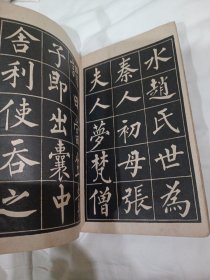 水趙氏世為
秦人初母張
夫人夢梵僧
子即出囊中
舍利使吞之